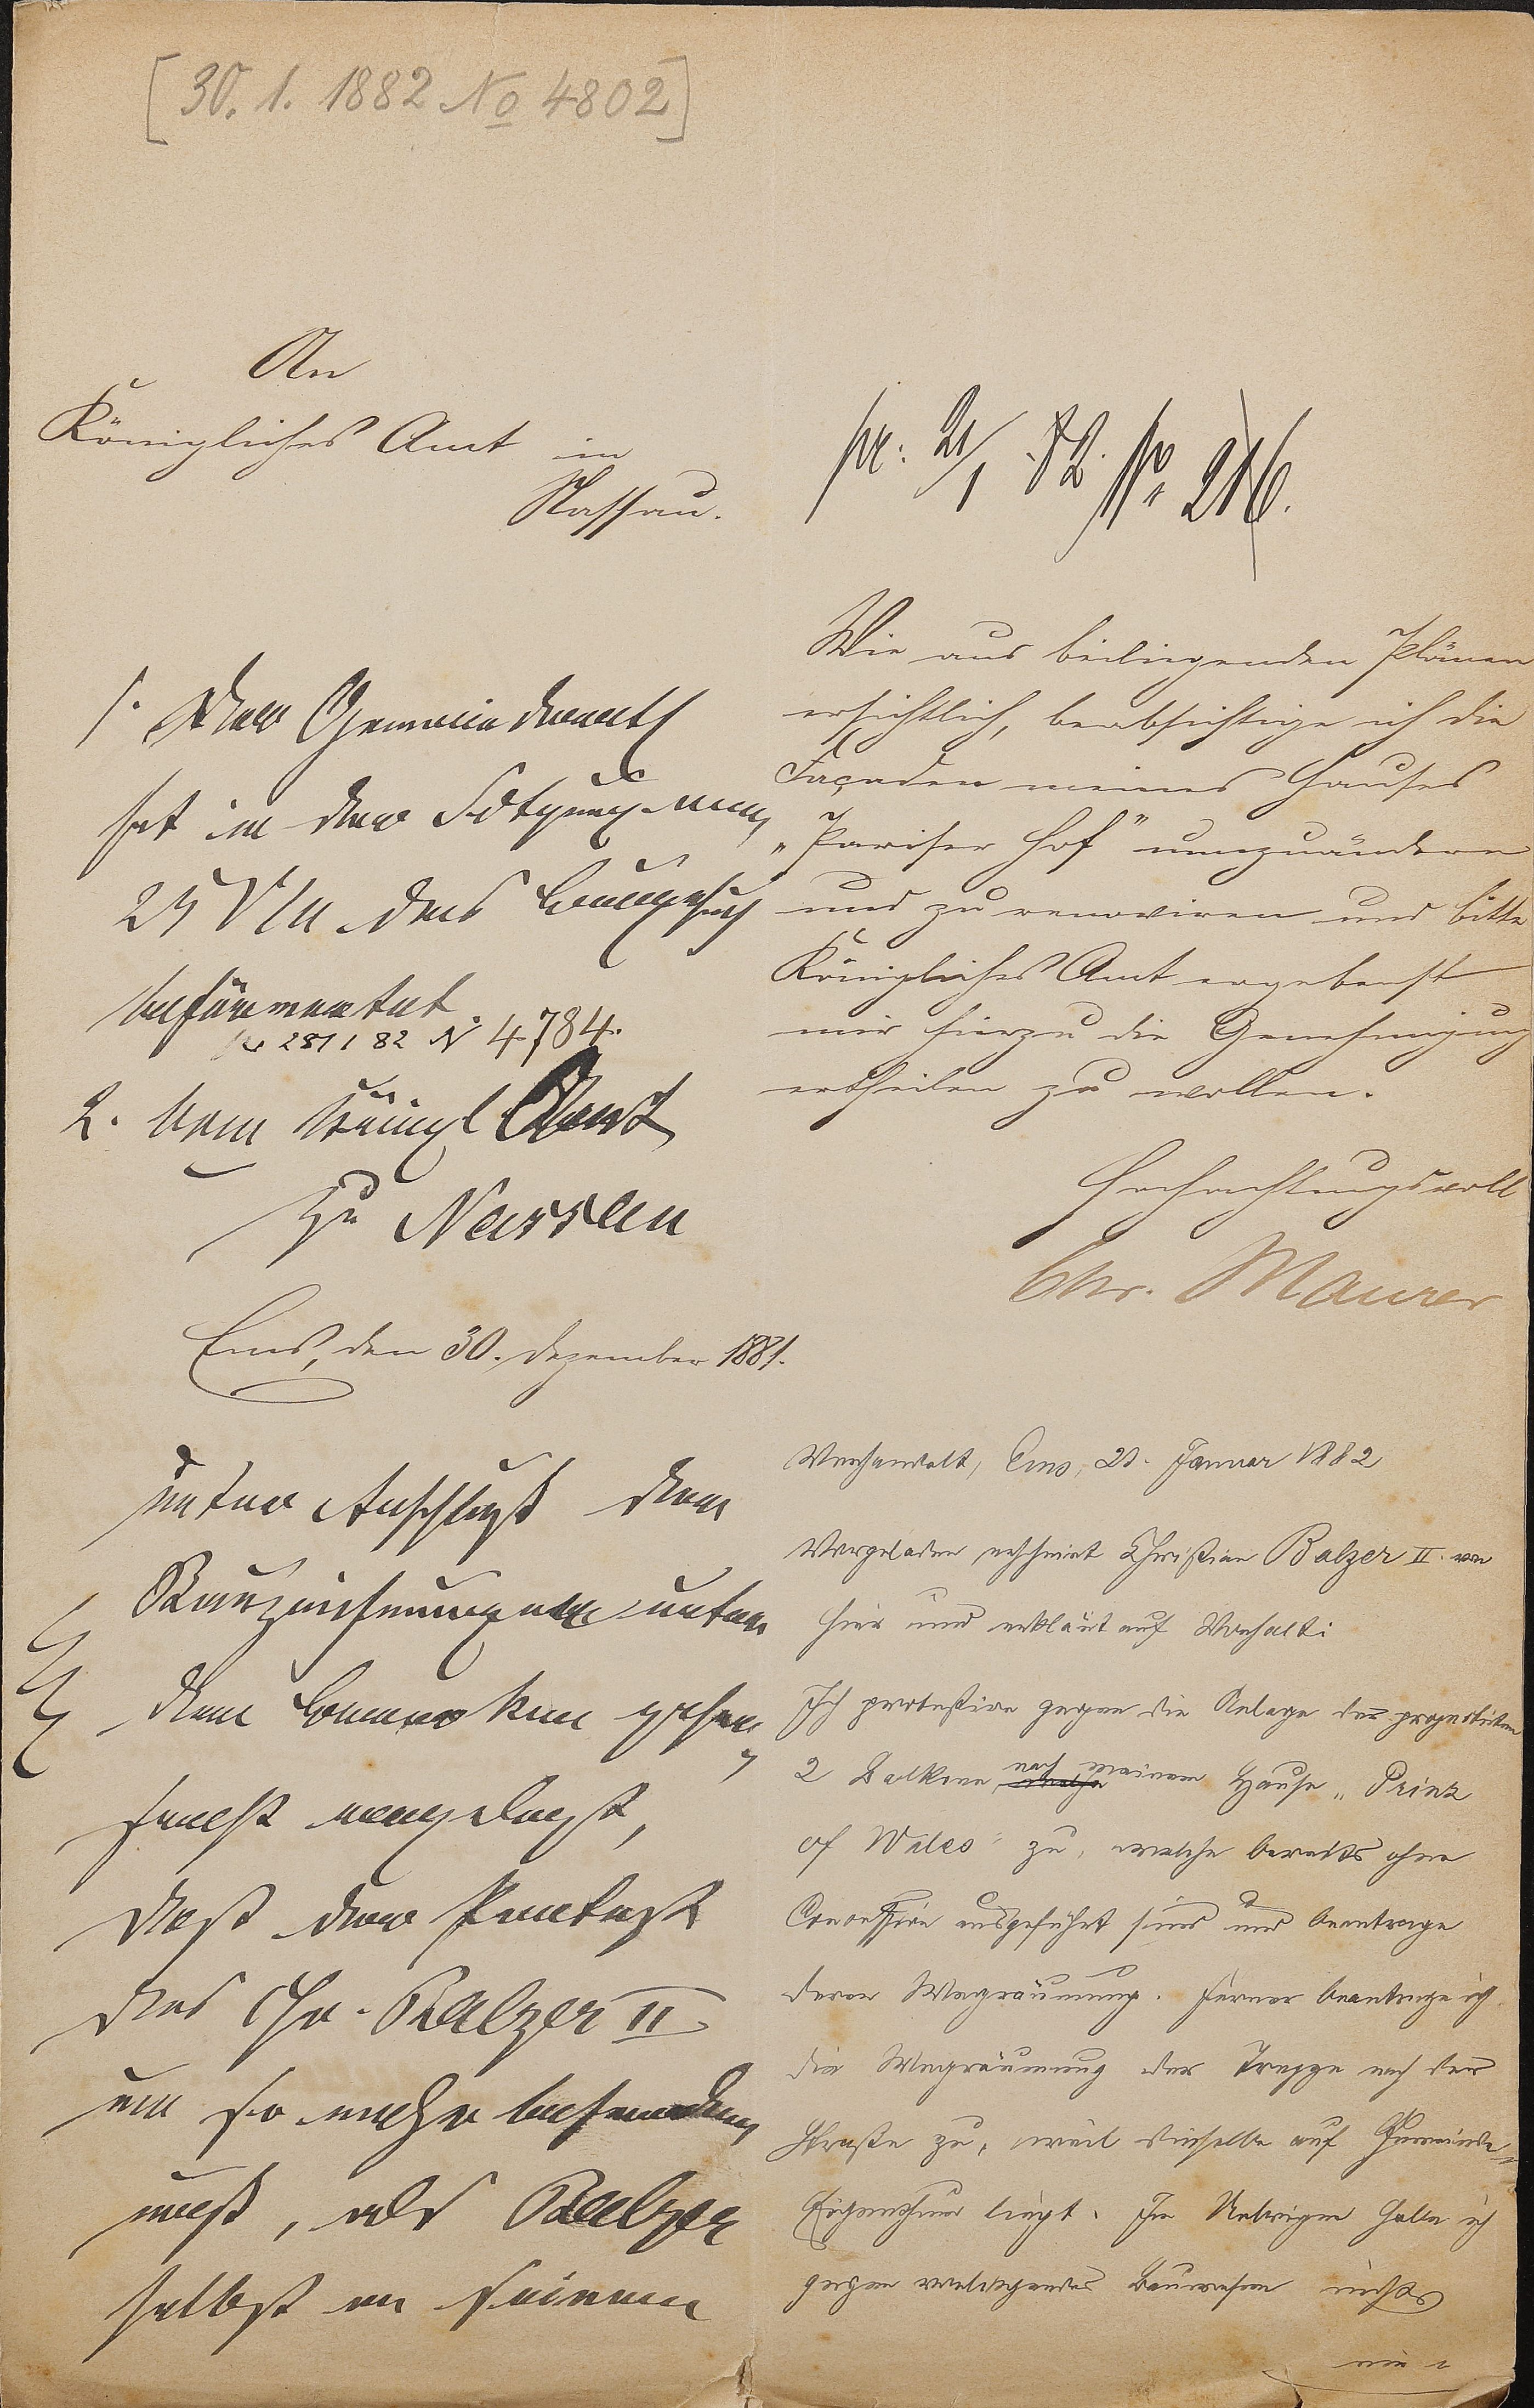 [30. 1. 1882 No 4802]
An
Königliches Amt in
Nassau.
1. Der Gemeinderath
hat in der Sitzung vom
25 VIII das Baugesuch
befürwortet.
pr 28/1 82 N 4784.
2. dem Königl Amt
zu Nassau
Ems, den 30. Dezember 1881.
unter Anschluß der
Bauzeichnungen unter
dem Bemerken gehor
samst vorgelegt,
daß der Protest
des Chr. Balzer II
um so mehr befremden
muß, als Balzer
selbst an seinem
pr: 21/1. 82. No 216.
Wie aus beiliegenden Plänen
ersichtlich, beabsichtige ich die
Façaden meines Hauses
„Pariser Hof" umzuändern
und zu renoviren und bitte
Königliches Amt ergebenst
mir hierzu die Genehmigung
ertheilen zu wollen.
Hochachtungsvoll
Chr. Maurer
Verhandelt, Ems, 21. Januar 1882
Vorgeladen erscheint Christian Balzer II. von
hier und erklärt auf Vorhalt:
Ich protestire gegen die Anlage der projektirten
2 Balkone nach meinem Hause „Prinz
of Wales" zu, welche bereits ohne
Concession ausgeführt sind und beantrage
deren Wegräumung. Ferner beantrage ich
die Wegräumung der Treppe nach der
Straße zu, weil dieselbe auf Gemeinde-
Eigenthum liegt. Im Uebrigen habe ich
gegen vorliegendes Bauwesen nichts